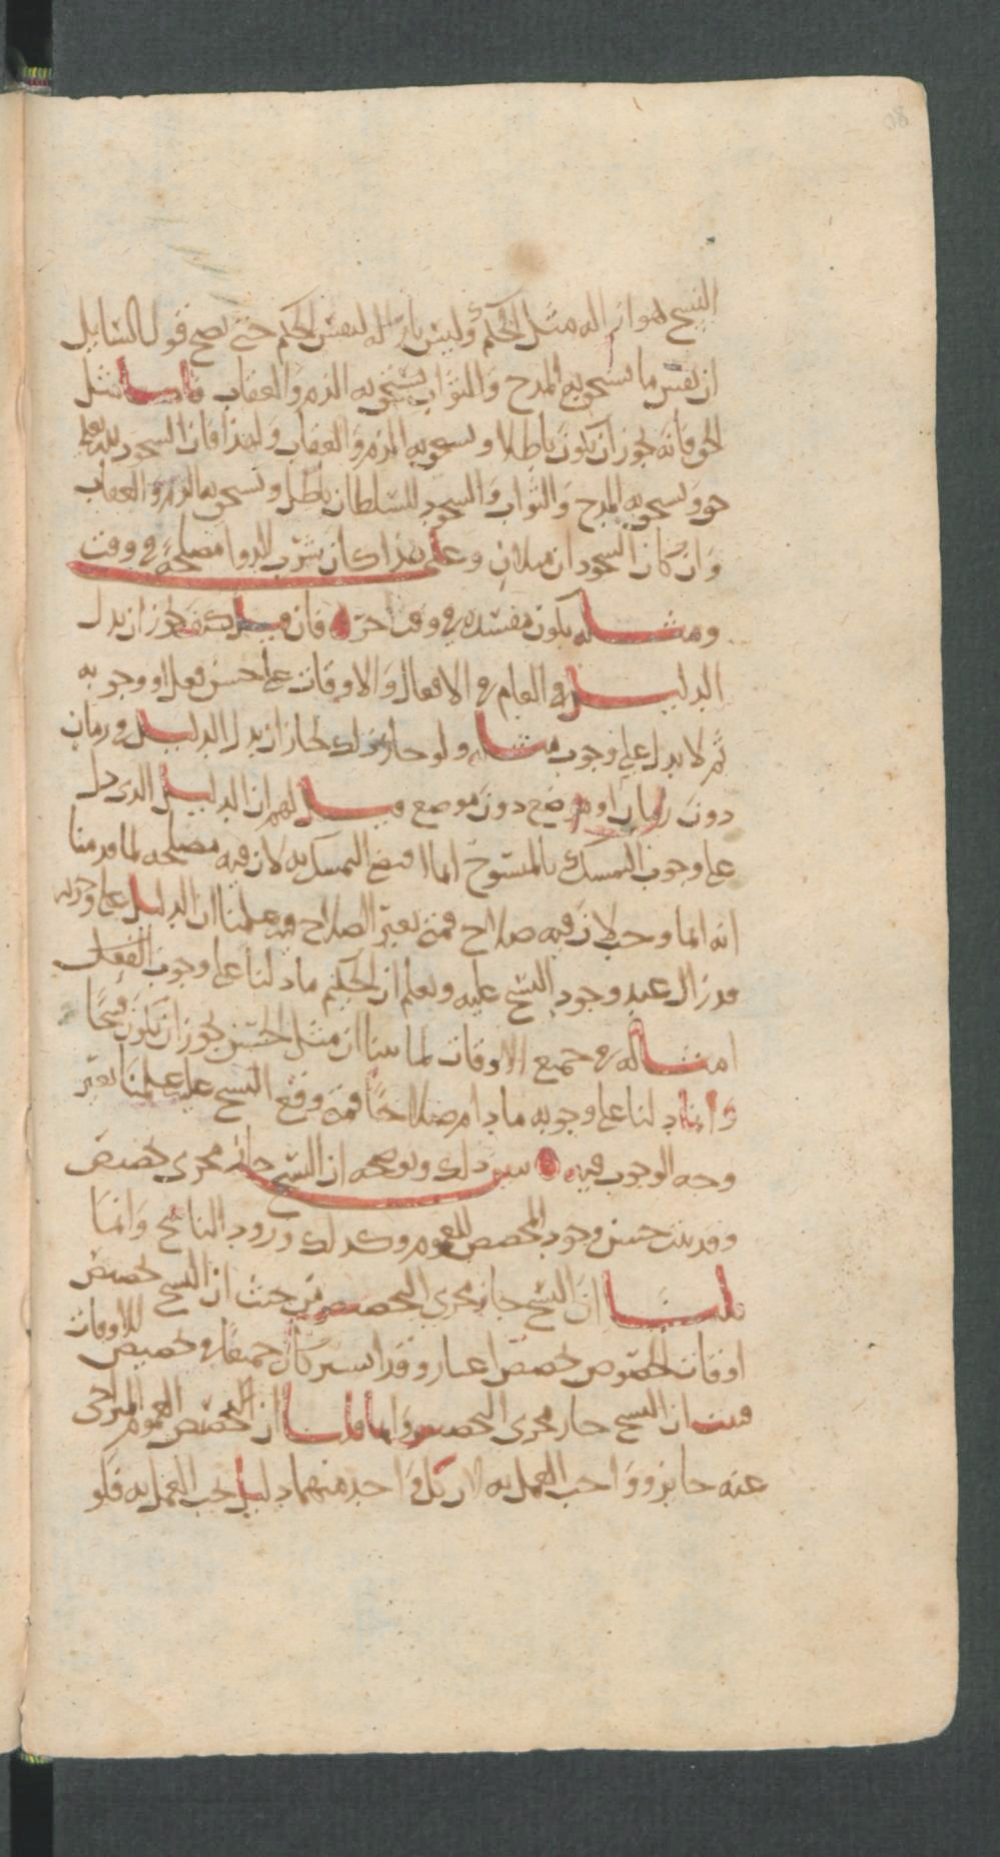 النسخ هو ازاله مثل الحكم وليس بازاله لنفس الحكم حتى يصح قول السايل
ان نفس ما يستحق به المدح والثواب يستحق به الذم والعقاب فاما مثل
الحق فانه يجوز ان يكون باطلا ويستحق به الذم والعقاب ولهذا فان السجود لله تعلى
حق ويستحق به المدح والثواب والسجود للشيطان باطل ويستحق به الذم والعقاب
وان كان السجودان مثلان وعلى هذا كان شرب الدوا مصلحة في وقت
ومثله يكون مفسده في وقت اخر فان قيل كيف يجوز ان يدل
الدليل العام في الافعال والاوقات على حسن فعل او وجوبه
ثم لا يدل على وجوب مثله ولو جاز ذلك لجاز ان يدل الدليل في زمان
دون زمان او موضع دون موضع قيل لهم ان الدليل الذي دل
على وجوب التمسك بالمنسوخ انما اقتضى التمسك به لان فيه مصلحه لما قدمنا
انه انما وجب لان فيه صلاح فمتى تغير الصلاح فقد علمنا ان الدليل على وجوبه
قد زال عند وجود النسخ عليه ونعلم ان الحكيم ما دلنا على وجوب الفعل
امثاله في جميع الاوقات لما بينا ان مثل الحسن يجوز ان يكون قبيحا
وانما دلنا على وجوبه ما دام صلاحا فمتى وقع النسخ عليه علمنا تغير
وجه الوجوب فيه يبين ذلك ويوضحه ان النسخ جار مجرى تخصيص
وقد بينت حسن وجود المخصص للعموم وكذلك ورود الناسخ وانما
قلنا ان النسخ جار مجرى التخصيص من حيث ان النسخ تخصيص
اوقات الخصوص تخصيص اعيان وقد اشتركا جميعا في تخصيص للاوقات
فبنت ان النسخ جار مجرى التخصيص وانما قلنا ان التخصيص العموم المتراخي
عنه جايز وواجب العمل به لان كل واحد منهما دليل يجب العمل به فلو